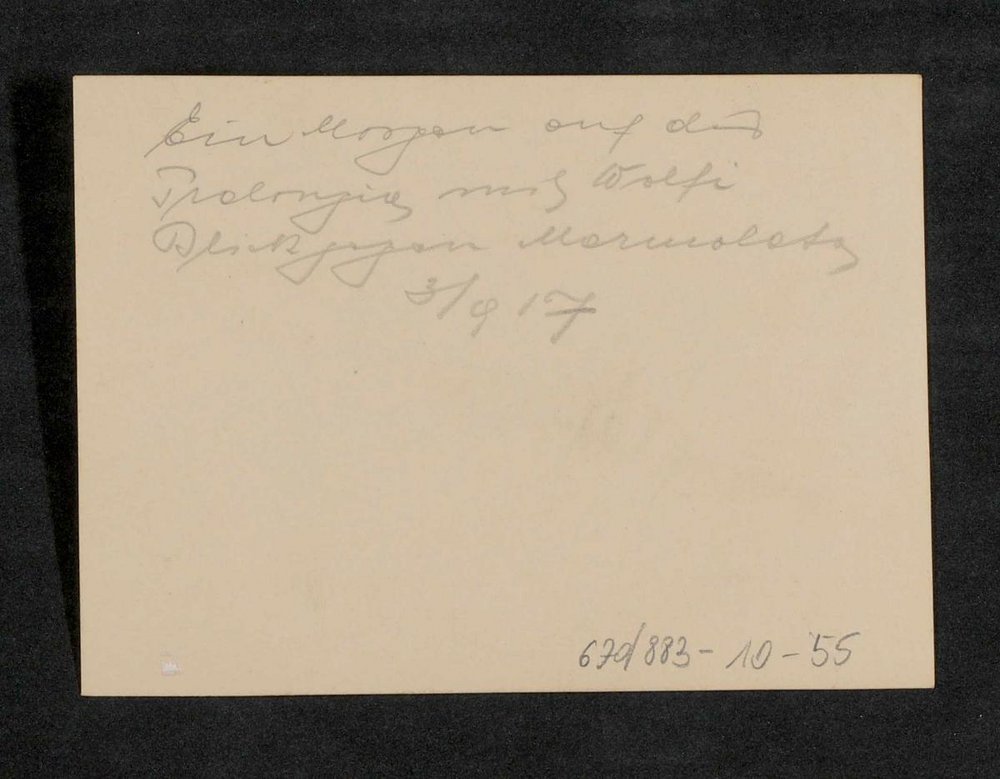 Ein Morgen auf der
Pralongia mit Wolfi
Blick gegen Marmolata
3/9 17
679/883-10-55